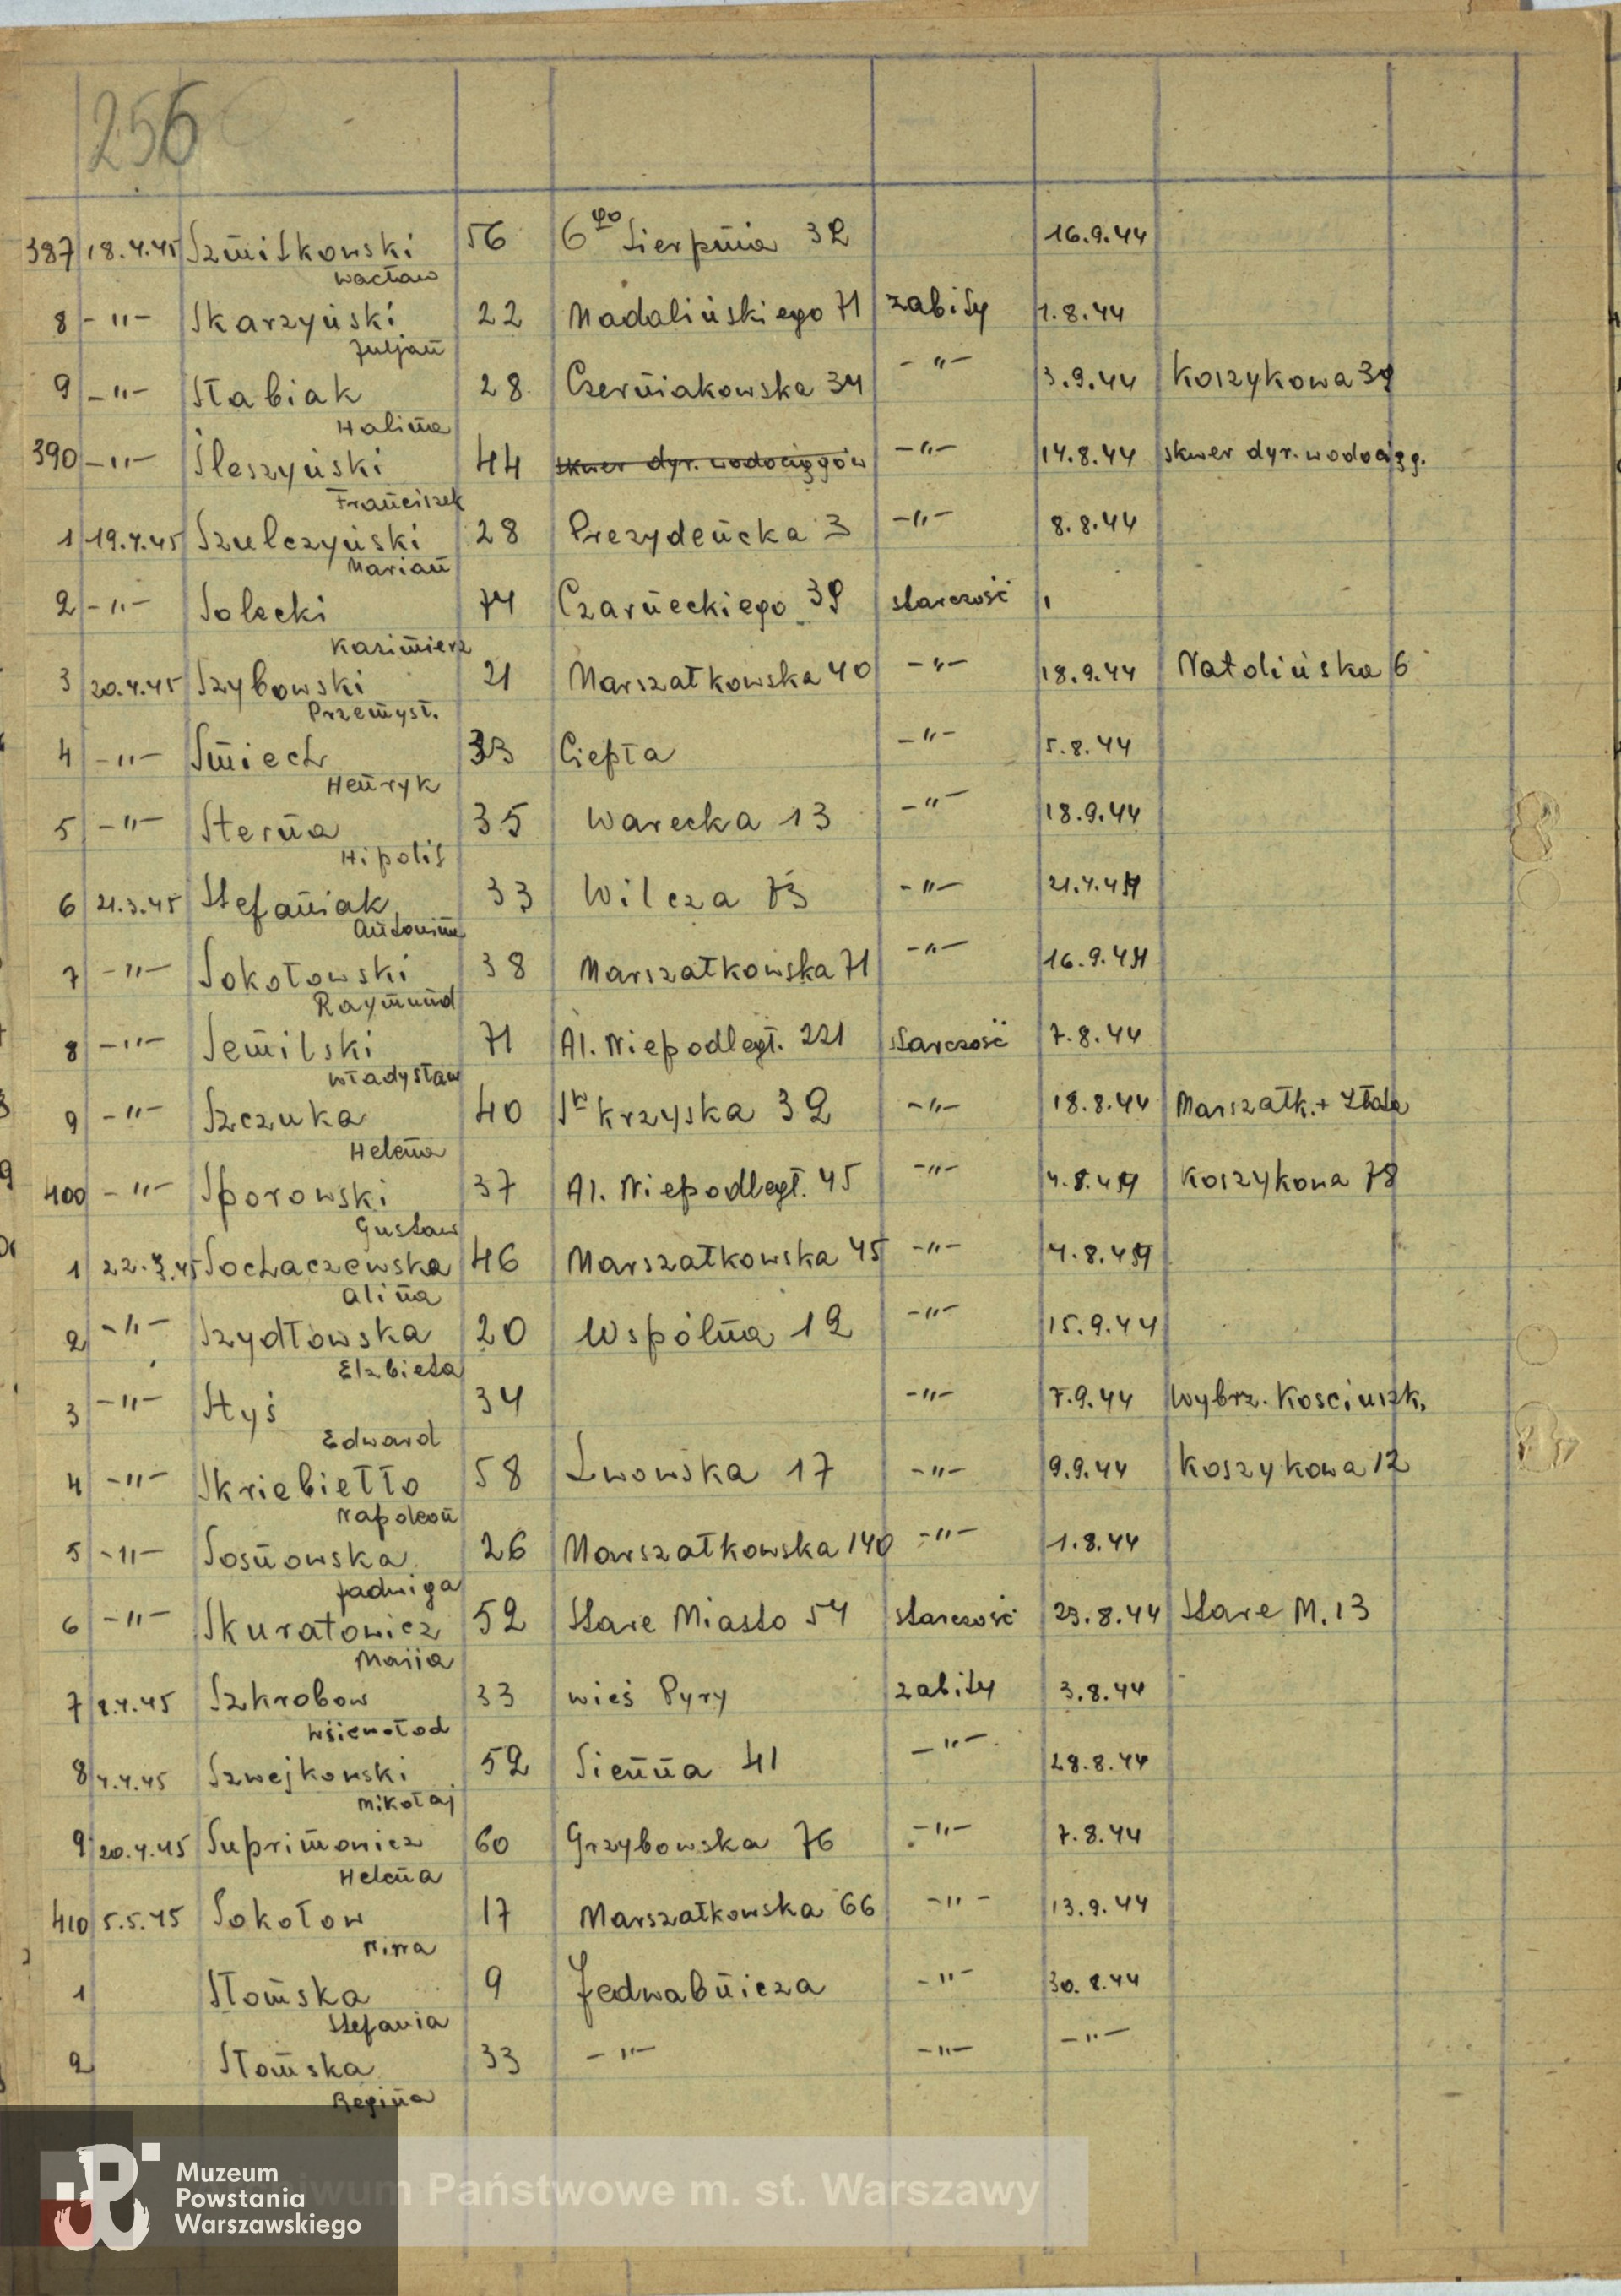 256
387 18.4.45 Szmitkowski 56 6go Sierpnia 32 16.9.44
Wacław
8 -"- Skarzyński 22 Madalińskiego 71 zabity 1.8.44
Juljan
9 -"- Słabiak 28 Czerniakowska 34 -"- 3.9.44 Koszykowa 39
Halina
390 -"- Śleszyński 44 skwer dyr. wodociągów -"- 14.8.44 skwer dyr. wodociąg.
Franciszek
1 19.4.45 Szulczyński 28 Prezydencka 3 -"- 8.8.44
Marian
2 -"- Solecki 74 Czarneckiego 39 starczość
Kazimierz
3 20.4.45 Szybowski 21 Marszałkowska 40 -"- 18.9.44 Natolińska 6
Przemysł.
4 -"- Smiech 33 Ciepła -"- 5.8.44
Henryk
5 -"- Sterna 35 Warecka 13 -"- 18.9.44
Hipolit
6 21.3.45 Stefaniak 33 Wilcza 73 -"- 21.4.44
Antonina
7 -"- Sokołowski 38 Marszałkowska 71 -"- 16.9.44
Raymund
8 -"- Semilski 71 Al. Niepodległ. 221 starczość 7.8.44
Władysław
9 -"- Szczuka 40 Sw Krzyska 32 -"- 18.8.44 Marszałk. + Złota
Helena
400 -"- Sporowski 37 Al. Niepodległ. 45 -"- 4.8.44 Koszykowa 78
Gustaw
1 22.3.45 Sochaczewska 46 Marszałkowska 45 -"- 4.8.44
Alina
2 -"- Szydłowska 20 Wspólna 12 -"- 15.9.44
Elzbieta
3 -"- Styś 34 -"- 7.9.44 Wybrz. Kosciuszk.
Edward
4 -"- Skriebiełło 58 Lwowska 17 -"- 9.9.44 Koszykowa 12
Napoleon
5 -"- Sosnowska 26 Marszałkowska 140 -"- 1.8.44
Jadwiga
6 -"- Skuratowicz 52 Stare Miasto 54 starczość 23.8.44 Stare M. 13
Marja
7 2.4.45 Szkrobow 33 wieś Pyry zabity 3.8.44
Wsiewołod
8 4.4.45 Szwejkowski 52 Sienna 41 -"- 28.8.44
Mikołaj
9 20.4.45 Suprimowicz 60 Grzybowska 76 -"- 7.8.44
Helena
410 5.5.45 Sokołow 17 Marszałkowska 66 -"- 13.9.44
Nina
1 Słomska 9 Jedwabnicza -"- 30.8.44
Stefania
2 Słomska 33 -"- -"- -"-
Regina
Muzeum
Powstania
Warszawskiego
Państwowe m. st. Warszawy